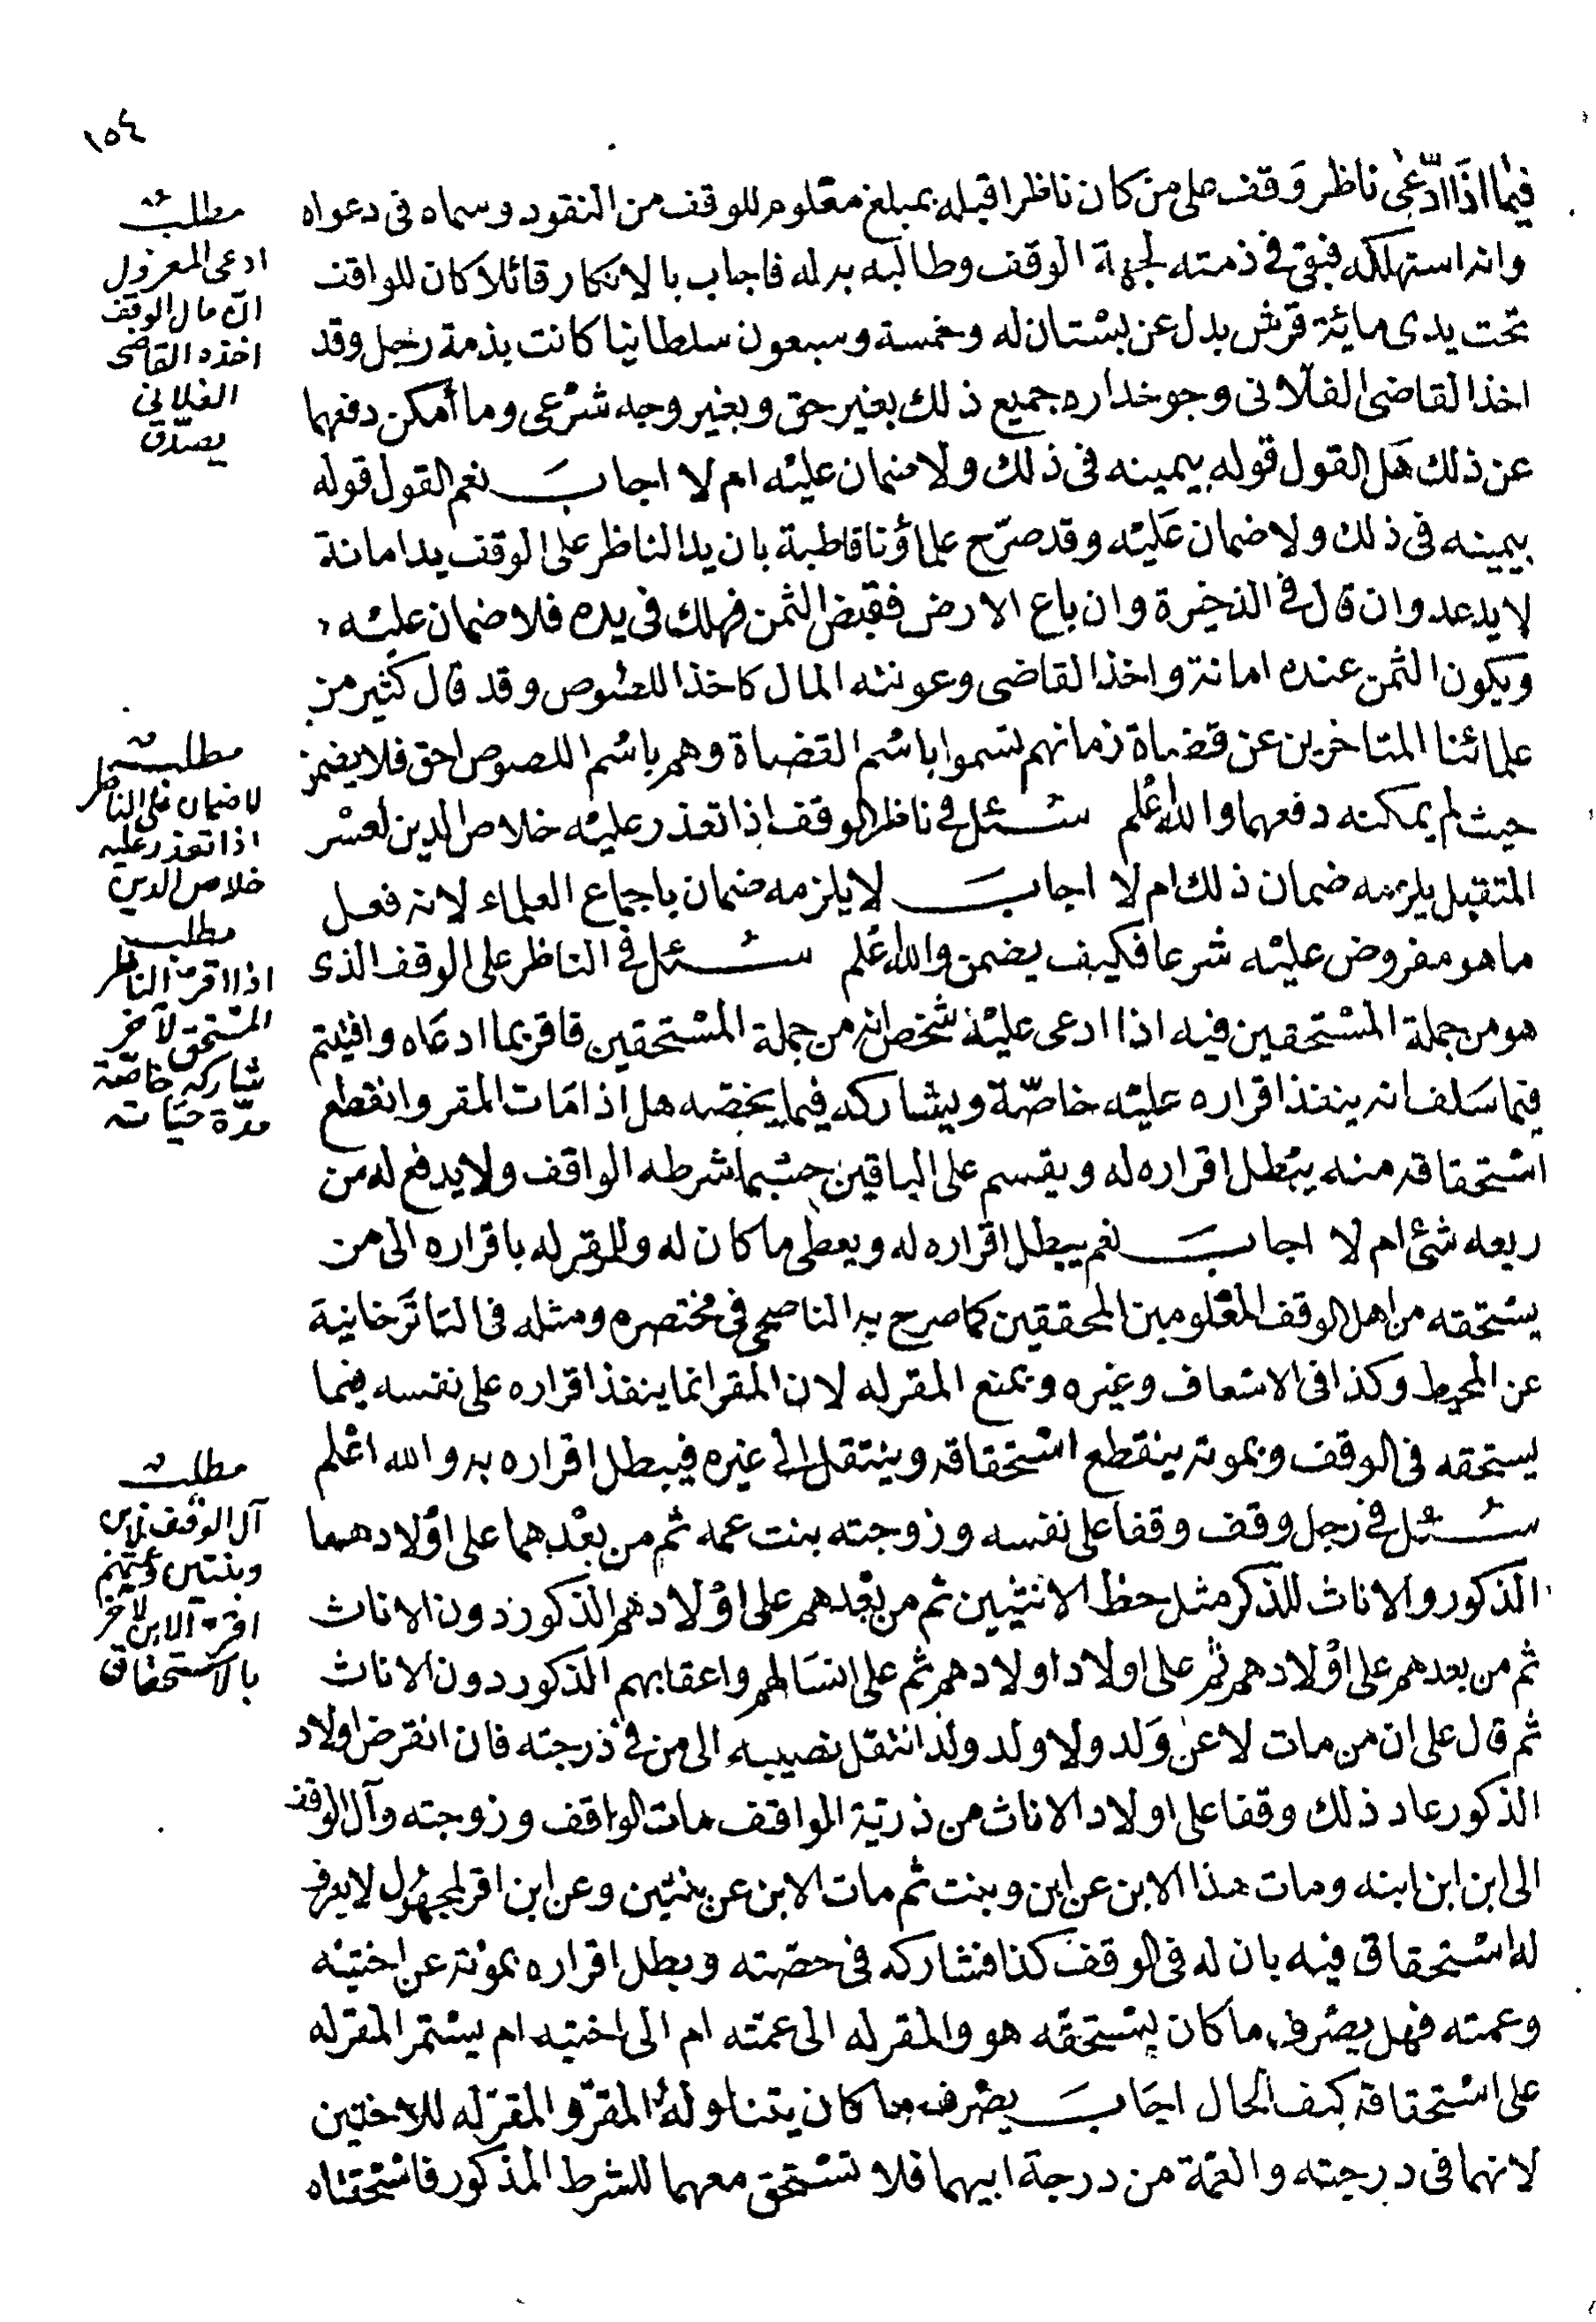 ١٥٤
فيما اذا ادّعى ناظر وقف على من كان ناظرا قبله بمبلغ معلوم للوقف من النقود وسماه فى دعواه
وانه استهلكه فبقى فى ذمته لجهة الوقف وطالبه بدله فاجاب بالانكار قائلا كان للواقف
تحت يدى مائة قرش بدل عن بستان له وخمسة وسبعون سلطانيا كانت بذمة رجل وقد
اخذ القاضى الفلانى وجوخداره جميع ذلك بغير حق وبغير وجه شرعى وما أمكن دفعهما
عن ذلك هل القول قوله بيمينه فى ذلك ولا ضمان عليه ام لا اجاب نعم القول قوله
بيمينه فى ذلك ولا ضمان عليه وقد صرّح علماؤنا قاطبة بان يد الناظر على الوقف يد امانة
لا يد عدوان قال فى الذخيرة وان باع الارض فقبض الثمن فهلك فى يده فلا ضمان عليه
ويكون الثمن عنده امانة واخذ القاضى وعونته المال كاخذ اللصوص وقد قال كثير من
علمائنا المتاخرين عن قضاة زمانهم تسموا باسم القضاة وهم باسم اللصوص احق فلا يضمن
حيث لم يمكنه دفعهما والله اعلم سئل فى ناظر الوقف اذا تعذر عليه خلاص الدين لعسر
المتقبل يلزمه ضمان ذلك ام لا اجاب لا يلزمه ضمان باجماع العلماء لانه فعل
ما هو مفروض عليه شرعا فكيف يضمن والله اعلم سئل فى الناظر على الوقف الذى
هو من جملة المستحقين فيه اذا ادعى عليه شخص انه من جملة المستحقين فاقر بما ادعاه وافيتم
فيما سلف انه ينفذ اقراره عليه خاصّة ويشاركه فيما يخصه هل اذا مات المقر وانقطع
استحقاقه منه يبطل اقراره له ويقسم على الباقين حسبما شرطه الواقف ولا يدفع له من
ريعه شئ ام لا اجاب نعم يبطل اقراره له ويعطى ما كان له وللمقر له باقراره الى من
يستحقه من اهل الوقف المعلومين المحققين كما صرح به الناصحى فى مختصره ومثله فى التاترخانية
عن المحيط وكذا فى الاسعاف وغيره ويمنع المقر له لان المقر انما ينفذ اقراره على نفسه فيما
يستحقه فى الوقف وبموته ينقطع استحقاقه وينتقل الى غيره فيبطل اقراره به والله اعلم
سئل فى رجل وقف وقفا على نفسه وزوجته بنت عمه ثم من بعدهما على اولادهما
الذكور والاناث للذكر مثل حظ الانثيين ثم من بعدهم على اولادهم الذكور دون الاناث
ثم من بعدهم على اولادهم ثم على اولاد اولادهم ثم على انسالهم واعقابهم الذكور دون الاناث
ثم قال على ان من مات لا عن ولد ولا ولد ولد انتقل نصيبه الى من فى درجته فان انقرض اولاد
الذكور عاد ذلك وقفا على اولاد الاناث من ذرية الواقف مات الواقف وزوجته وآل الوقف
الى ابن ابن ابنه ومات هذا الابن عن ابن وبنت ثم مات الابن عن بنتين وعن ابن اقر لمجهول لا يعرف
له استحقاق فيه بان له فى الوقف كذا فشاركه فى حصّته وبطل اقراره بموته عن اختيه
وعمته فهل يصرف ما كان يستحقه هو والمقر له الى عمته ام الى اختيه ام يستمر المقر له
على استحقاقه كيف الحال اجاب يصرف ما كان يتناوله المقر والمقر له للاختين
لانهما فى درجته والعمة من درجة ابيهما فلا تستحق معهما للشرط المذكور فاستحقتاه
مطلب
ادعى المعزول
ان مال الوقف
اخذه القاضى
الفلانى
يصدّق
مطلب
لا ضمان على الناظر
اذا تعذر عليه
خلاص الدين
مطلب
اذا اقر الناظر
المستحق لآخر
شاركه خاصّة
مدّة حياته
مطلب
آل الوقف لابن
وبنتين وعمتهم
اقر الابن لآخر
بالاستحقاق